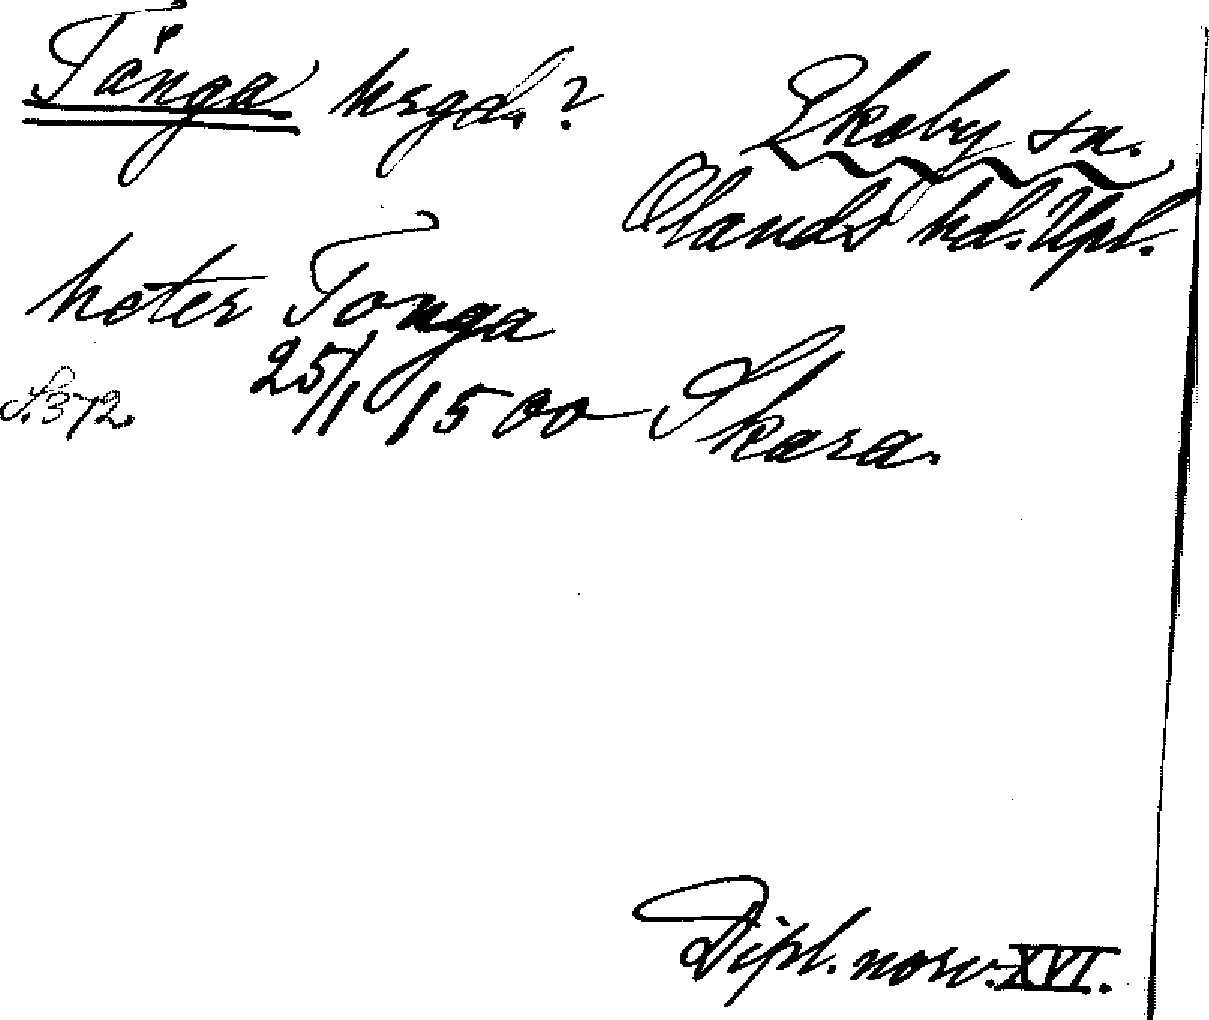 Tånga hrgd.? Ekeby sn.
Olands hd. Upl.
heter Tonga
S. 372. 25/1 1500 Skara.
Dipl. norv. XVI.